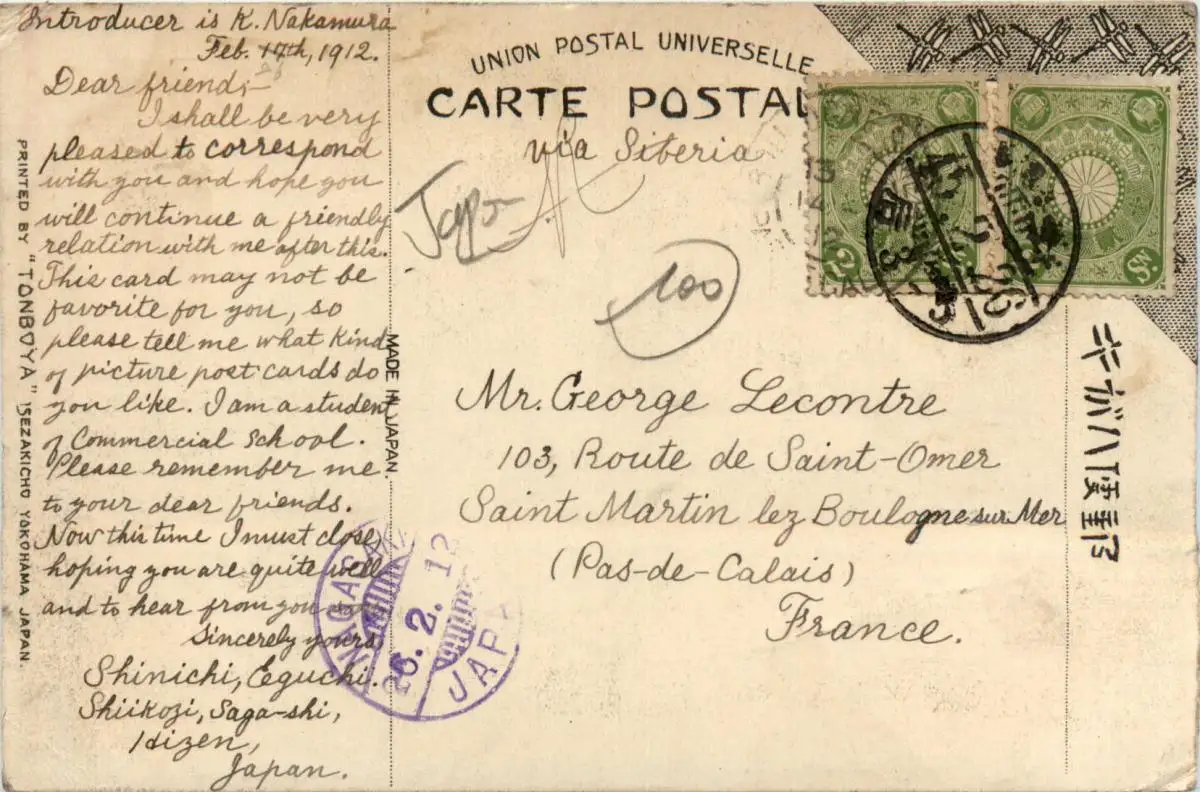 Introducer is K. Nakamura
Feb. 17th, 1912.
Dear friend,—
I shall be very
pleased to correspond
with you and hope you
will continue a friendly
relation with me after this.
This card may not be
favorite for you, so
please tell me what kind
of picture post cards do
you like. I am a student
of Commercial School.
Please remember me
to your dear friends.
Now this time I must close,
hoping you are quite well
and to hear from you
Sincerely yours,
Shinichi, Eguchi.
Shiikozi, Saga-shi,
Hizen,
Japan.
PRINTED BY "TONBOYA" ISEZAKICHO YOKOHAMA JAPAN.
MADE IN JAPAN.
UNION POSTAL UNIVERSELLE
CARTE POSTAL
via Siberia
Japon
100
Mr. George Lecontre
103, Route de Saint-Omer
Saint Martin lez Boulogne sur Mer
(Pas-de-Calais)
France.
26.2.12
JAPA
45.2.26
キガハ便郵